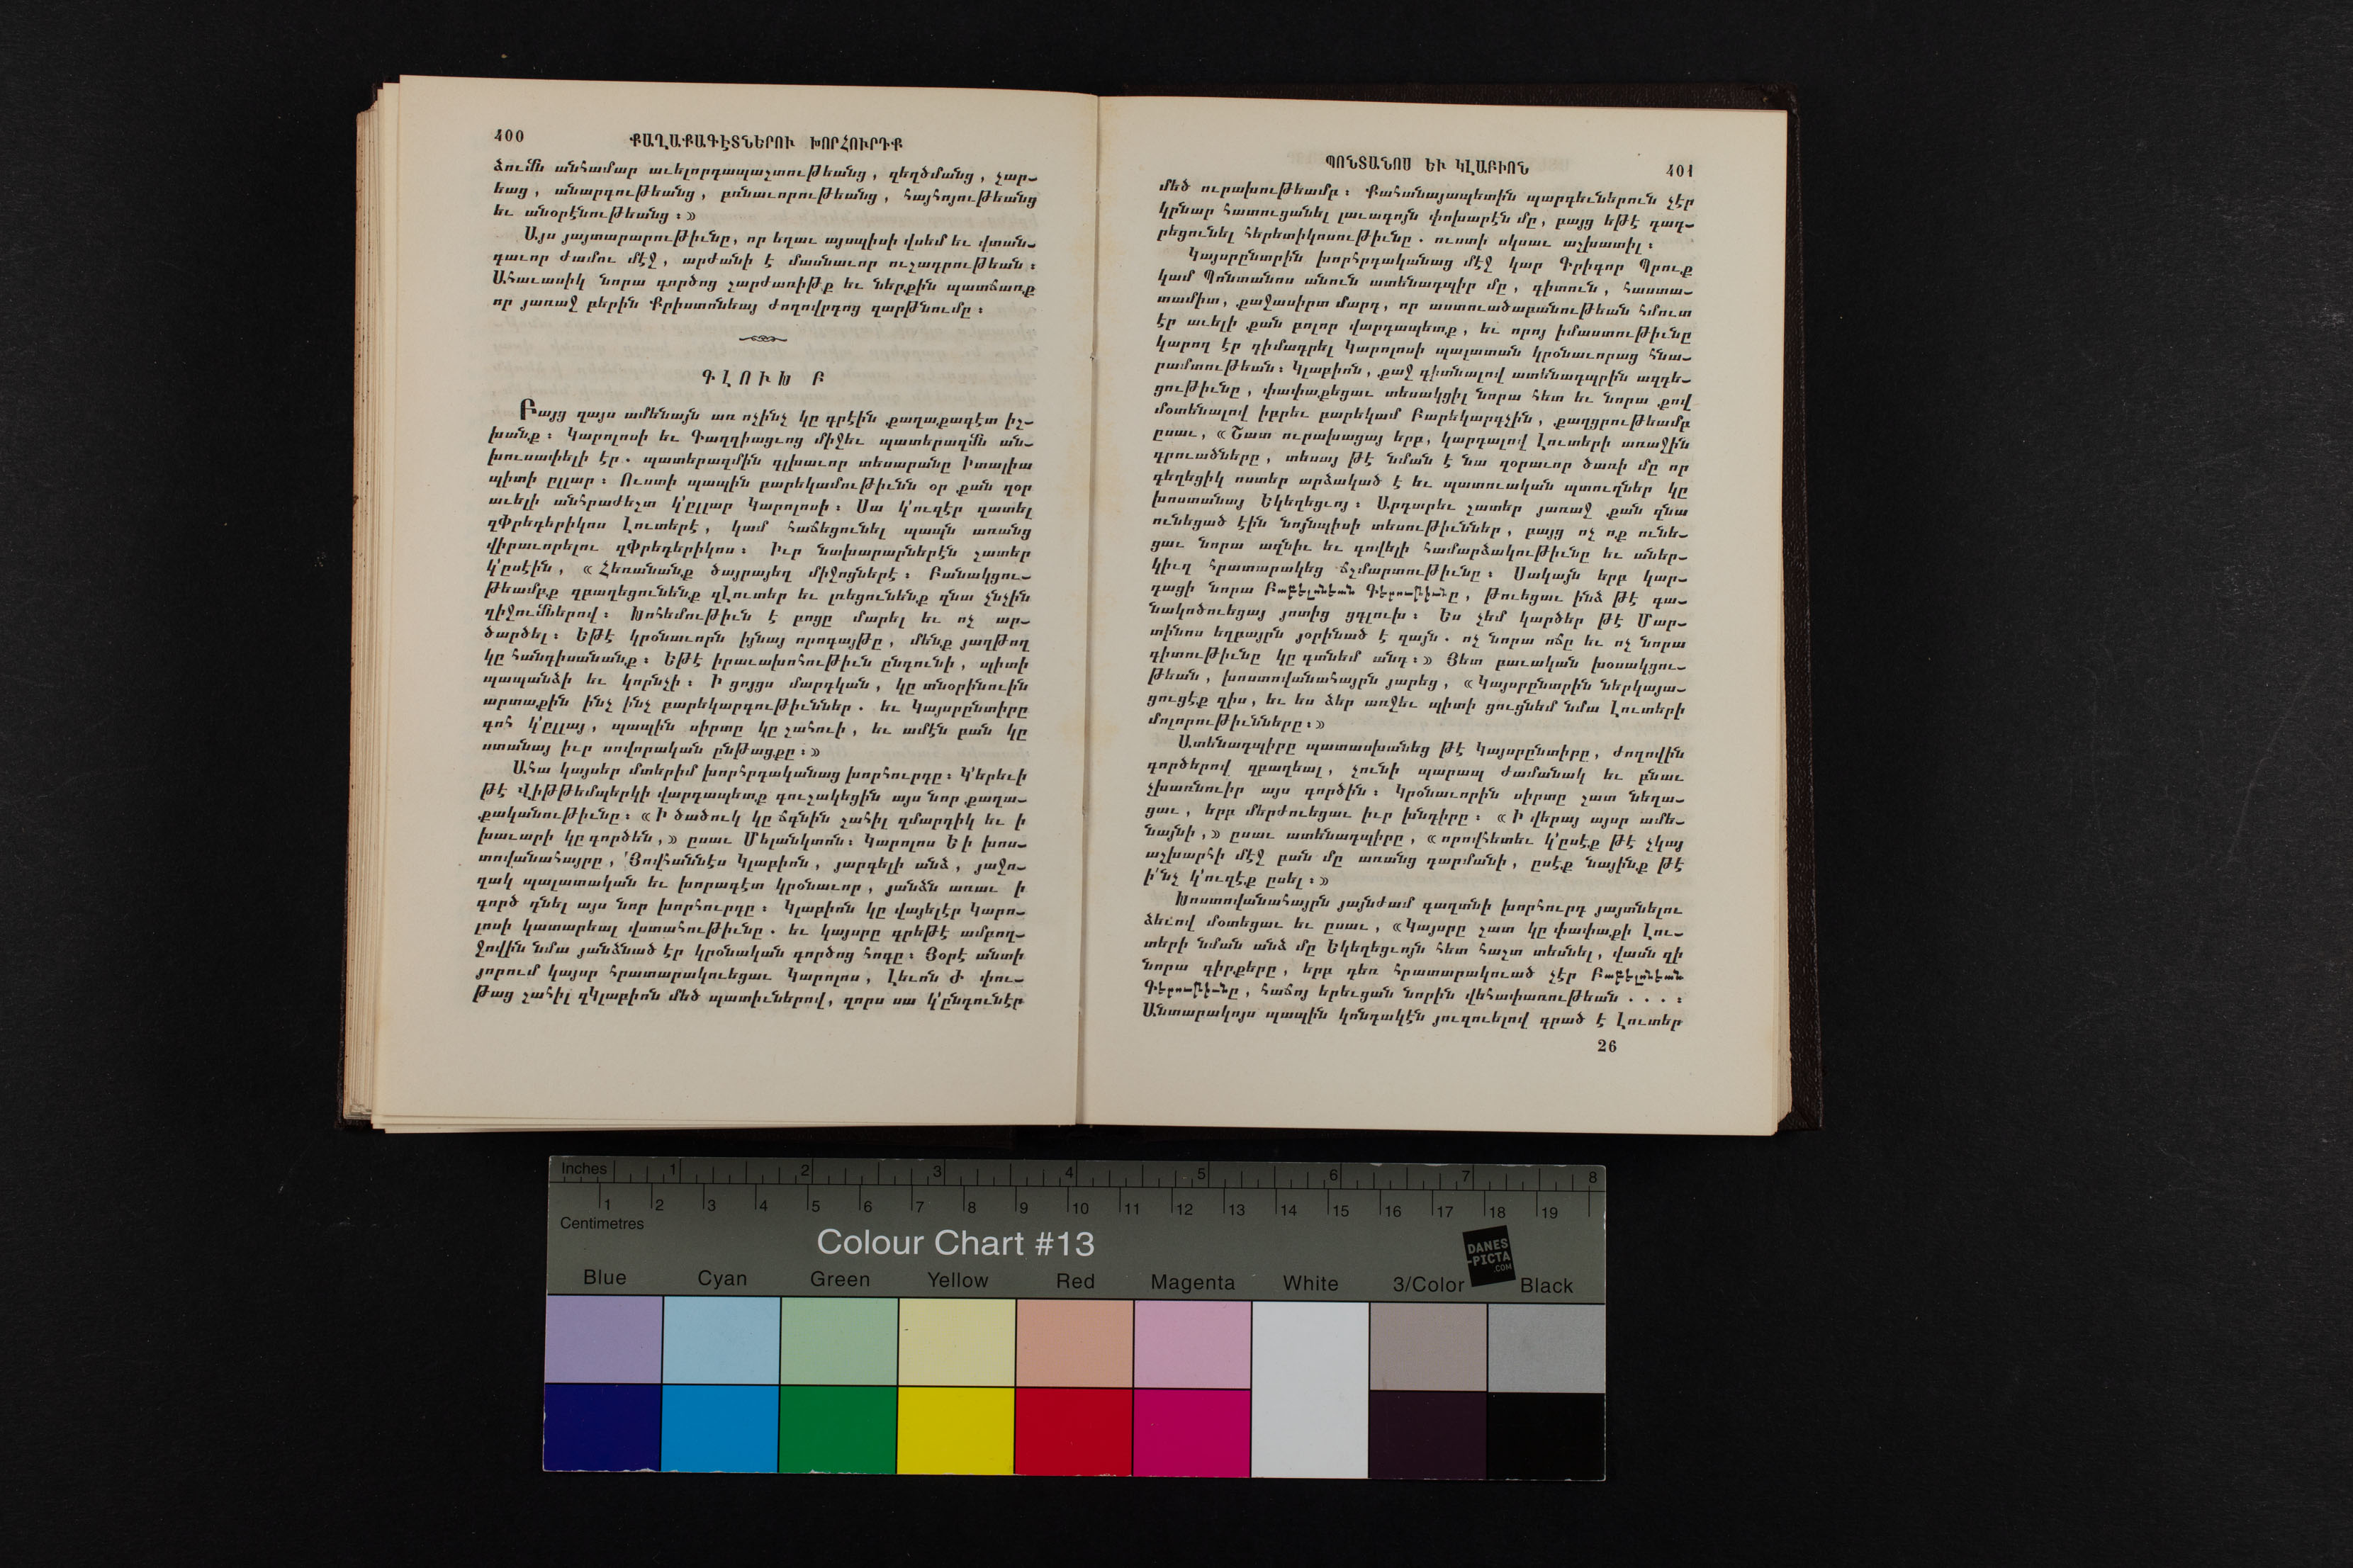 400
ՔԱՂԱՔԱԳԷՏՆԵՐՈՒ ԽՈՐՀՈՒՐԴՔ
ձումն անհամար աւելորդապաշտութեանց, զեղծմանց, չար-
եաց, անարդութեանց, բռնաւորութեանց, հայհոյութեանց
եւ անօրէնութեանց։»
Այս յայտարարութիւնը, որ եղաւ այսպիսի վսեմ եւ վտան-
գաւոր ժամու մէջ, արժանի է մասնաւոր ուշադրութեան։
Ահաւասիկ նորա գործոց շարժառիթք եւ ներքին պատճառք
որ յառաջ բերին Քրիստոնեայ ժողովրդոց զարթնումը։
ԳԼՈՒԽ Բ
Բայց զայս ամենայն առ ոչինչ կը գրէին քաղաքագէտ իշ-
խանք։ Կարոլոսի եւ Գաղղիացւոց միջեւ պատերազմն ան-
խուսափելի էր. պատերազմին գլխաւոր տեսարանը Իտալիա
պիտի ըլլար։ Ուստի պապին բարեկամութիւնն օր քան զօր
աւելի անհրաժեշտ կ՚ըլլար Կարոլոսի։ Սա կ՚ուզէր զատել
զՓրեդերիկոս Լուտերէ, կամ հաճեցունել պապն առանց
վիրաւորելու զՓրեդերիկոս։ Իւր նախարարներէն շատեր
կ՚ըսէին, «Հեռանանք ծայրայեղ միջոցներէ։ Բանակցու-
թեամբք զբաղեցունենք զԼուտեր եւ լռեցունենք զնա չնչին
զիջումներով։ Խոհեմութիւն է բոցը մարել եւ ոչ ար-
ծարծել։ Եթէ կրօնաւորն իյնայ որոգայթը, մենք յաղթող
կը հանդիսանանք։ Եթէ իրաւախոհութիւն ընդունի, պիտի
պապանձի եւ կորնչի։ Ի ցոյցս մարդկան, կը տնօրինուին
արտաքին ինչ ինչ բարեկարգութիւններ. եւ Կայսրընտիրը
գոհ կ՚ըլլայ, պապին սիրտը կը շահուի, եւ ամէն բան կը
ստանայ իւր սովորական ընթացքը։»
Ահա կայսեր մտերիմ խորհրդականաց խորհուրդը։ Կ՚երեւի
թէ Վիթթեմպերկի վարդապետք գուշակեցին այս նոր քաղա-
քականութիւնը։ «Ի ծածուկ կը ճգնին շահիլ զմարդիկ եւ ի
խաւարի կը գործեն,» ըսաւ Մելանկտոն։ Կարոլոս Ե ի խոս-
տովանահայրը, Յովհաննէս Կլաբիոն, յարգելի անձ, յաջո-
ղակ պալատական եւ խորագէտ կրօնաւոր, յանձն առաւ ի
գործ դնել այս նոր խորհուրդը։ Կլաբիոն կը վայելէր Կարո-
լոսի կատարեալ վստահութիւնը. եւ կայսրը գրեթէ ամբող-
ջովին նմա յանձնած էր կրօնական գործոց հոգը։ Յօրէ անտի
յորում կայսր հրատարակուեցաւ Կարոլոս, Լեւոն Ժ փու-
թաց շահիլ զԿլաբիոն մեծ պատիւներով, զորս սա կ՚ընդունէր
ՊՈՆՏԱՆՈՍ ԵՒ ԿԼԱԲԻՈՆ
401
մեծ ուրախութեամբ։ Քահանայապետին պարգեւներուն չէր
կրնար հատուցանել լաւագոյն փոխարէն մը, բայց եթէ դադ-
րեցունել հերետիկոսութիւնը. ուստի սկսաւ աշխատիլ։
Կայսրընտրին խորհրդականաց մէջ կար Գրիգոր Պրուք
կամ Պոնտանոս անուն ատենադպիր մը, գիտուն, հաստա-
տամիտ, քաջասիրտ մարդ, որ աստուածաբանութեան հմուտ
էր աւելի քան բոլոր վարդապետք, եւ որոյ իմաստութիւնը
կարող էր դիմադրել Կարոլոսի պալատան կրօնաւորաց հնա-
րամտութեան։ Կլաբիոն, քաջ գիտնալով ատենադպրին ազդե-
ցութիւնը, փափաքեցաւ տեսակցիլ նորա հետ եւ նորա քով
մօտենալով իբրեւ բարեկամ Բարեկարգչին, քաղցրութեամբ
ըսաւ, «Շատ ուրախացայ երբ, կարդալով Լուտերի առաջին
գրուածները, տեսայ թէ նման է նա զօրաւոր ծառի մը որ
գեղեցիկ ոստեր արձակած է եւ պատուական պտուղներ կը
խոստանայ Եկեղեցւոյ։ Արդարեւ շատեր յառաջ քան զնա
ունեցած էին նոյնպիսի տեսութիւններ, բայց ոչ ոք ունե-
ցաւ նորա ազնիւ եւ գովելի համարձակութիւնը եւ աներ-
կիւղ հրատարակեց ճշմարտութիւնը։ Սակայն երբ կար-
դացի նորա Բաբելոնեան Գերութիւնը, թուեցաւ ինձ թէ գա-
նակոծուեցայ յոտից ցգլուխ։ Ես չեմ կարծեր թէ Մար-
տինոս եղբայրն յօրինած է զայն. ոչ նորա ոճը եւ ոչ նորա
գիտութիւնը կը գտնեմ անդ։» Յետ բաւական խօսակցու-
թեան, խոստովանահայրն յարեց, «Կայսրընտրին ներկայա-
ցուցէք զիս, եւ ես ձեր առջեւ պիտի ցուցնեմ նմա Լուտերի
մոլորութիւնները։»
Ատենադպիրը պատասխանեց թէ Կայսրընտիրը, ժողովին
գործերով զբաղեալ, չունի պարապ ժամանակ եւ բնաւ
չխառնուիր այս գործին։ Կրօնաւորին սիրտը շատ նեղա-
ցաւ, երբ մերժուեցաւ իւր խնդիրը։ «Ի վերայ այսր ամե-
նայնի,» ըսաւ ատենադպիրը, «որովհետեւ կ՚ըսէք թէ չկայ
աշխարհի մէջ բան մը առանց դարմանի, ըսէք նայինք թէ
ի՛նչ կ՚ուզէք ըսել։»
Խոստովանահայրն յայնժամ գաղտնի խորհուրդ յայտնելու
ձեւով մօտեցաւ եւ ըսաւ, «Կայսրը շատ կը փափաքի Լու-
տերի նման անձ մը Եկեղեցւոյն հետ հաշտ տեսնել, վասն զի
նորա գիրքերը, երբ դեռ հրատարակուած չէր Բաբելոնեան
Գերութիւնը, հաճոյ երեւցան նորին վեհափառութեան . . . ։
Անտարակոյս պապին կոնդակէն յուզուելով գրած է Լուտեր
26
Inches 1 2 3 4 5 6 7 8
1 2 3 4 5 6 7 8 9 10 11 12 13 14 15 16 17 18 19
Centimetres
Colour Chart #13
DANES
-PICTA
.COM
Blue Cyan Green Yellow Red Magenta White 3/Color Black